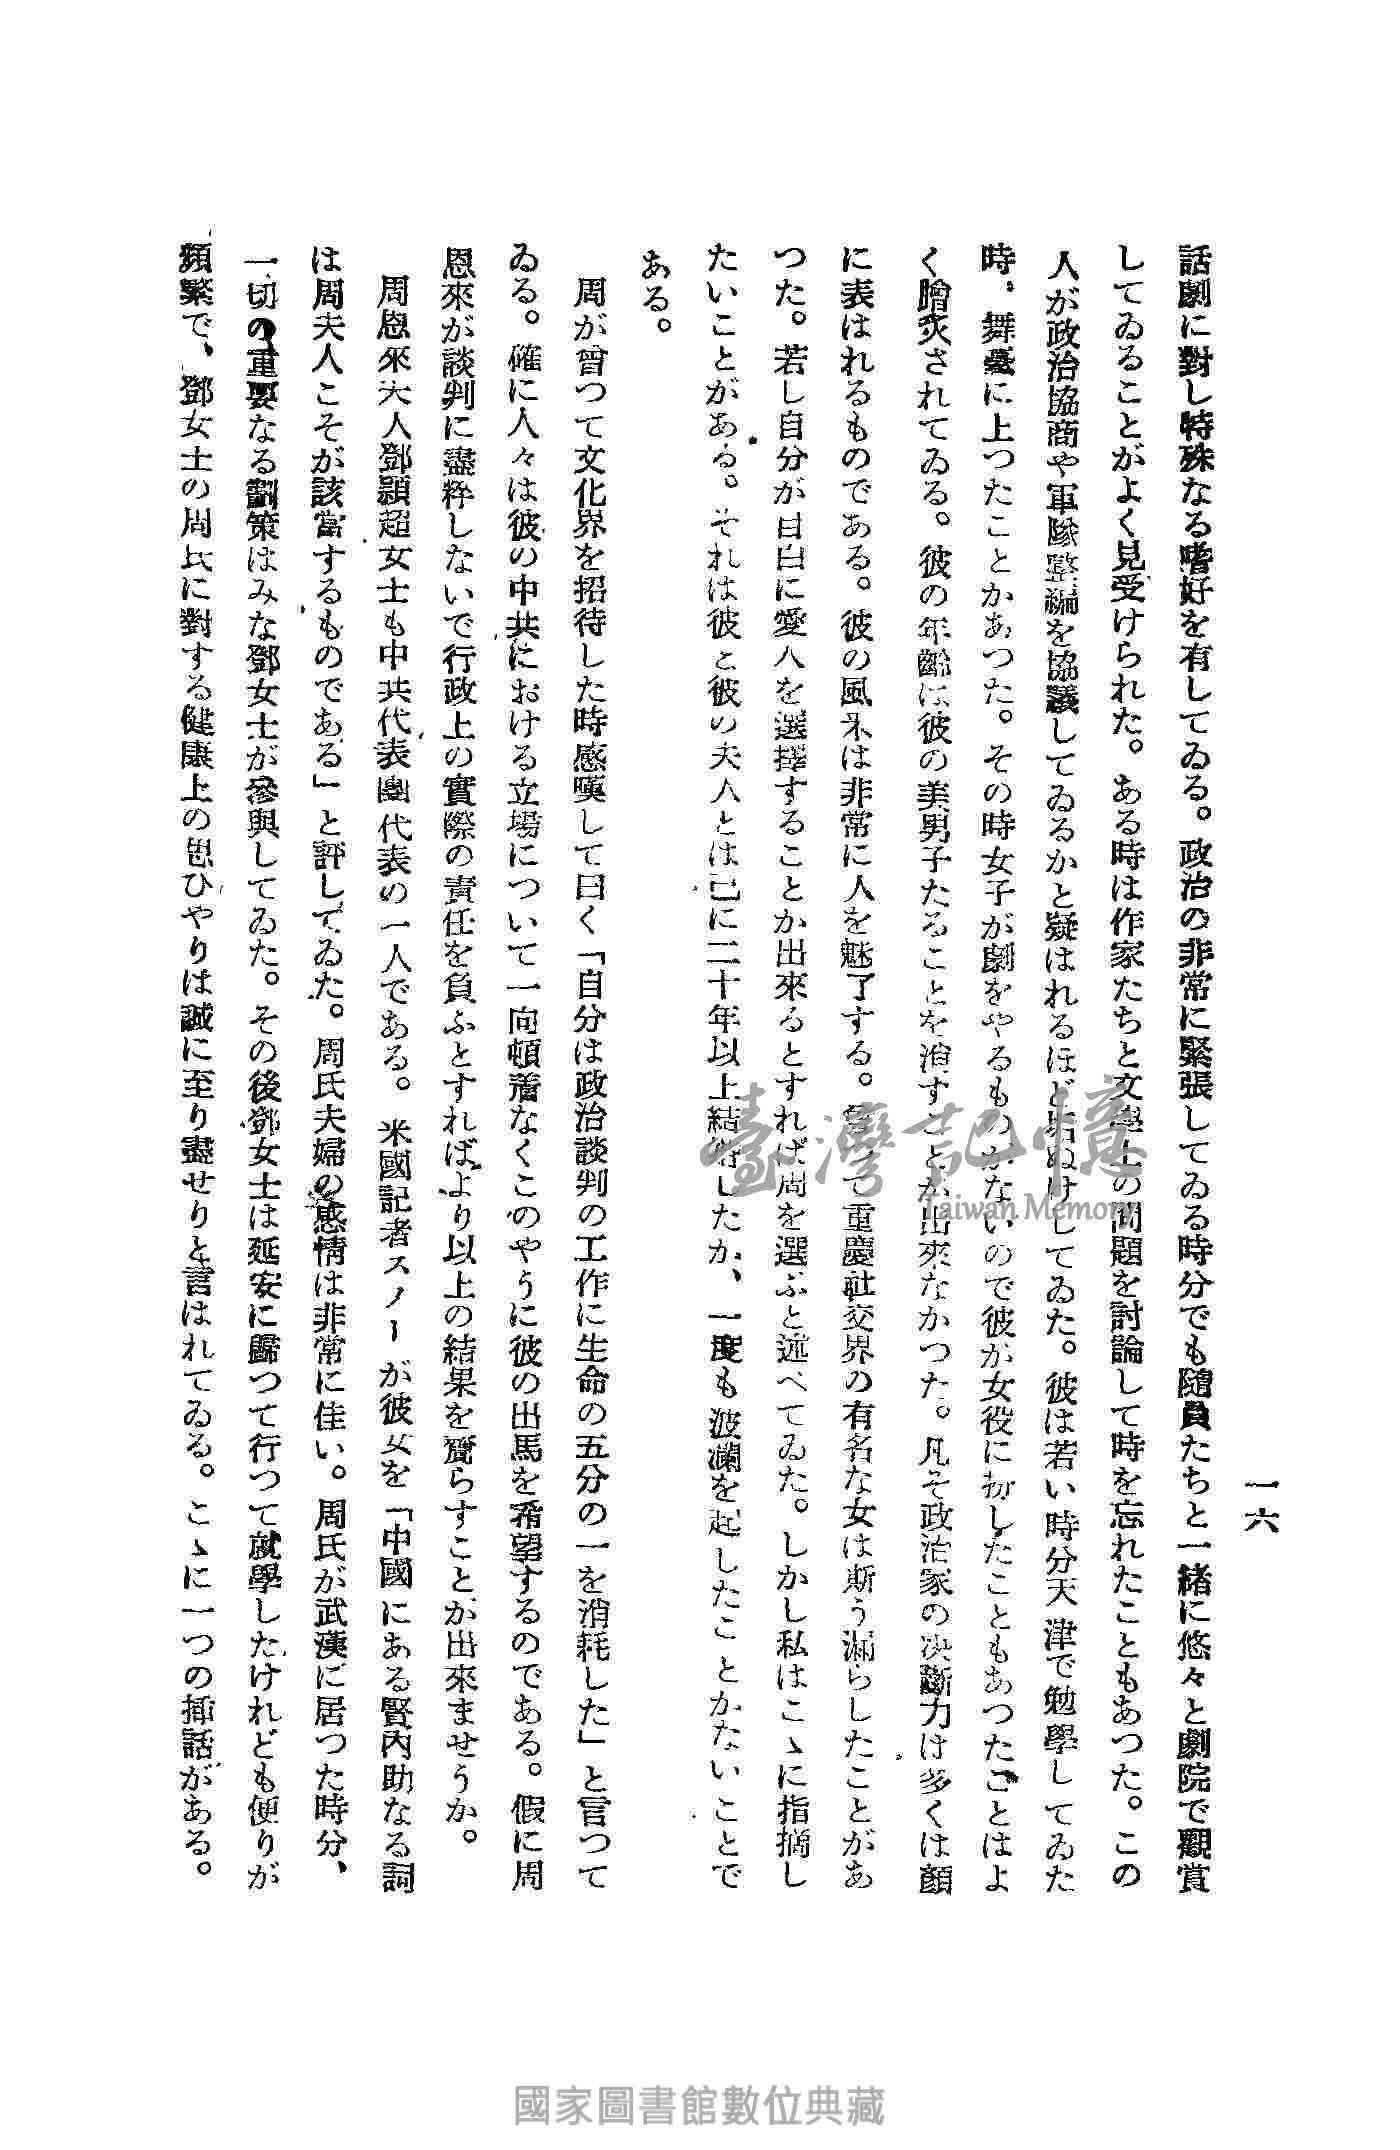 一六
話劇に對し特殊なる嗜好を有してゐる。政治の非常に緊張してゐる時分でも隨員たちと一緒に悠々と劇院で觀賞
してゐることがよく見受けられた。ある時は作家たちと文學上の問題を討論して時を忘れたこともあつた。この
人が政治協商や軍隊整編を協議してゐるかと疑はれるほど垢ぬけしてゐた。彼は若い時分天津で勉學してゐた
時、舞臺に上つたことがあつた。その時女子が劇をやるものがないので彼が女役に扮したこともあつたことはよ
く膾炙されてゐる。彼の年齡は彼の美男子たることを消すことが出來なかつた。凡そ政治家の決斷力は多くは顏
に表はれるものである。彼の風釆は非常に人を魅了する。曾て重慶社交界の有名な女は斯う漏らしたことがあ
つた。若し自分が自由に愛人を選擇することが出來るとすれば周を選ぶと述べてゐた。しかし私はこゝに指摘し
たいことがある。それは彼と彼の夫人とは已に二十年以上結婚したが、一度も波瀾を起したことがないことで
ある。
周が曾つて文化界を招待した時感嘆して曰く「自分は政治談判の工作に生命の五分の一を消耗した」と言つて
ゐる。確に人々は彼の中共における立場について一向頓着なくこのやうに彼の出馬を希望するのである。假に周
恩來が談判に盡粹しないで行政上の實際の責任を負ふとすればより以上の結果を齎らすことが出來ませうか。
周恩來夫人鄧頴超女士も中共代表團代表の一人である。米國記者スノーが彼女を「中國にある賢內助なる詞
は周夫人こそが該當するものである」と評してゐた。周氏夫婦の感情は非常に佳い。周氏が武漢に居つた時分、
一切の重要なる劃策はみな鄧女士が參與してゐた。その後鄧女士は延安に歸つて行つて就學したけれども便りが
頻繁で、鄧女士の周氏に對する健康上の思ひやりは誠に至り盡せりと言はれてゐる。こゝに一つの揷話がある。
臺灣記憶
Taiwan Memory
國家圖書館數位典藏